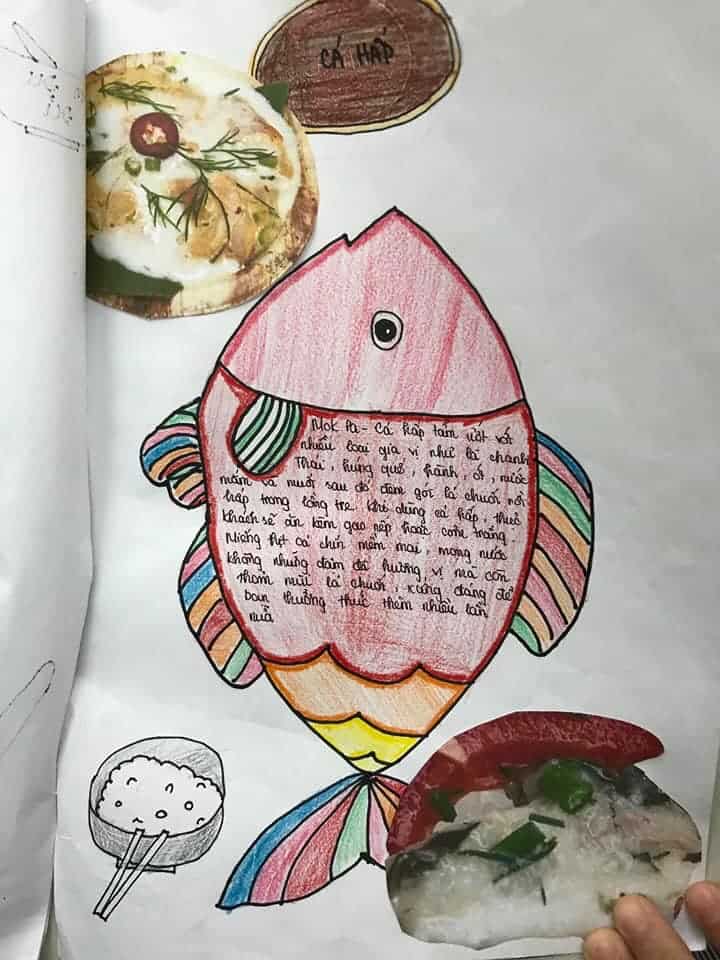 CÁ HẤP
Mok Pa - Cá hấp tẩm ướt với
nhiều loại gia vị như là chanh
Thái, húng quế, hành, ớt, nước
mắm và muối sau đó đem gói lá chuối rồi
hấp trong lồng tre. Khi dùng cá hấp, thực
khách sẽ ăn kèm gạo nếp hoặc cơm trắng.
Miếng thịt cá chín mềm mại, mọng nước
không những đậm đà hương, vị mà còn
thơm mùi lá chuối, xứng đáng để
bạn thưởng thức thêm nhiều lần
nữa